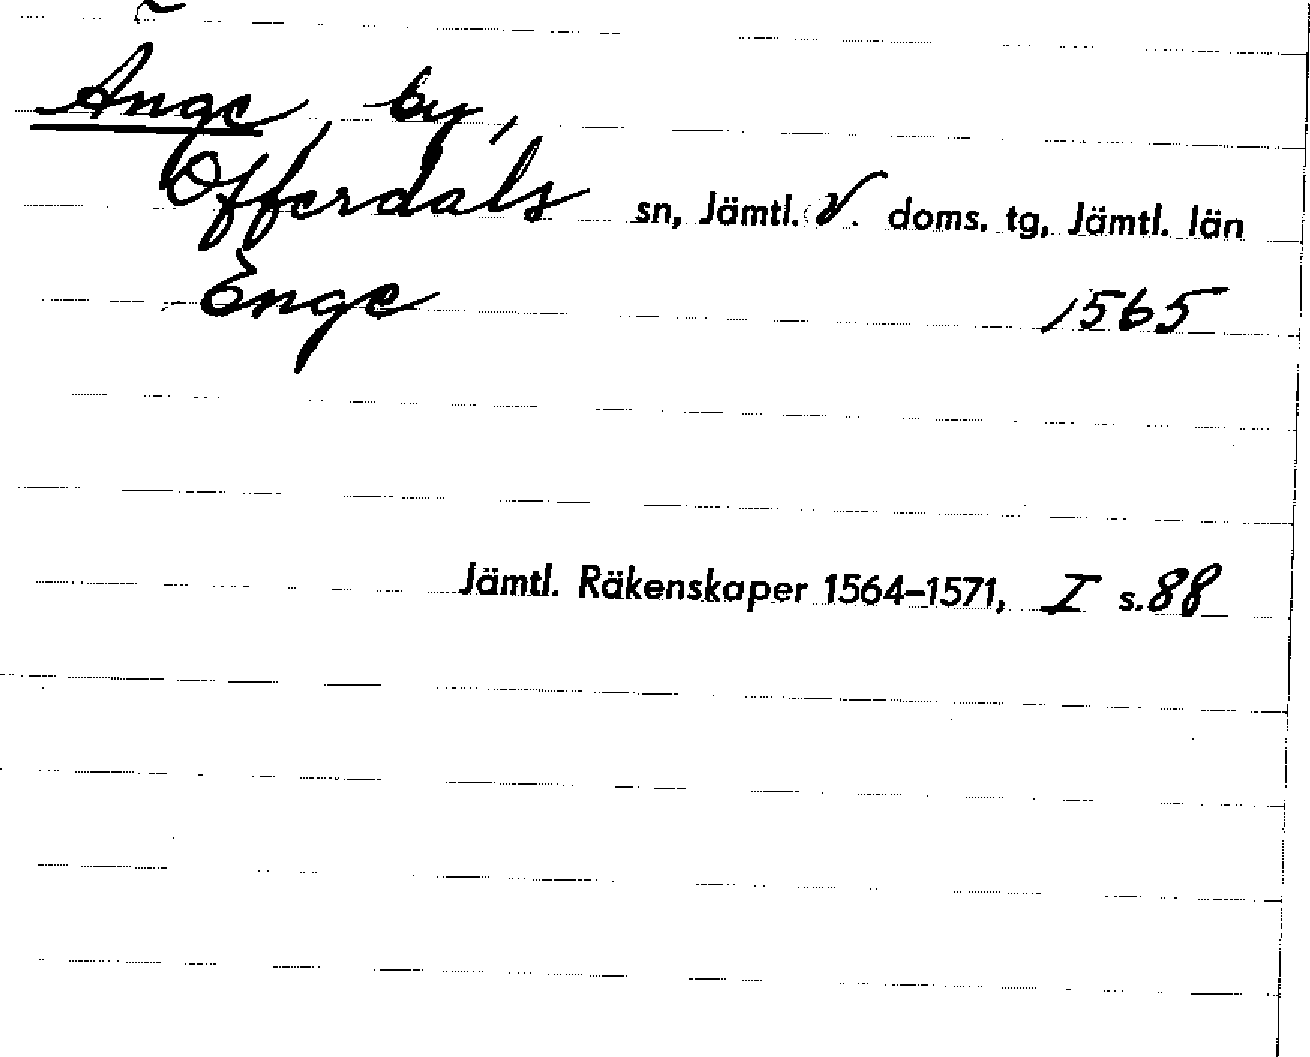 Änge by,
Offerdals sn, Jämtl. V. doms. tg, Jämtl. län
Enge 1565
Jämtl. Räkenskaper 1564-1571, I s. 88